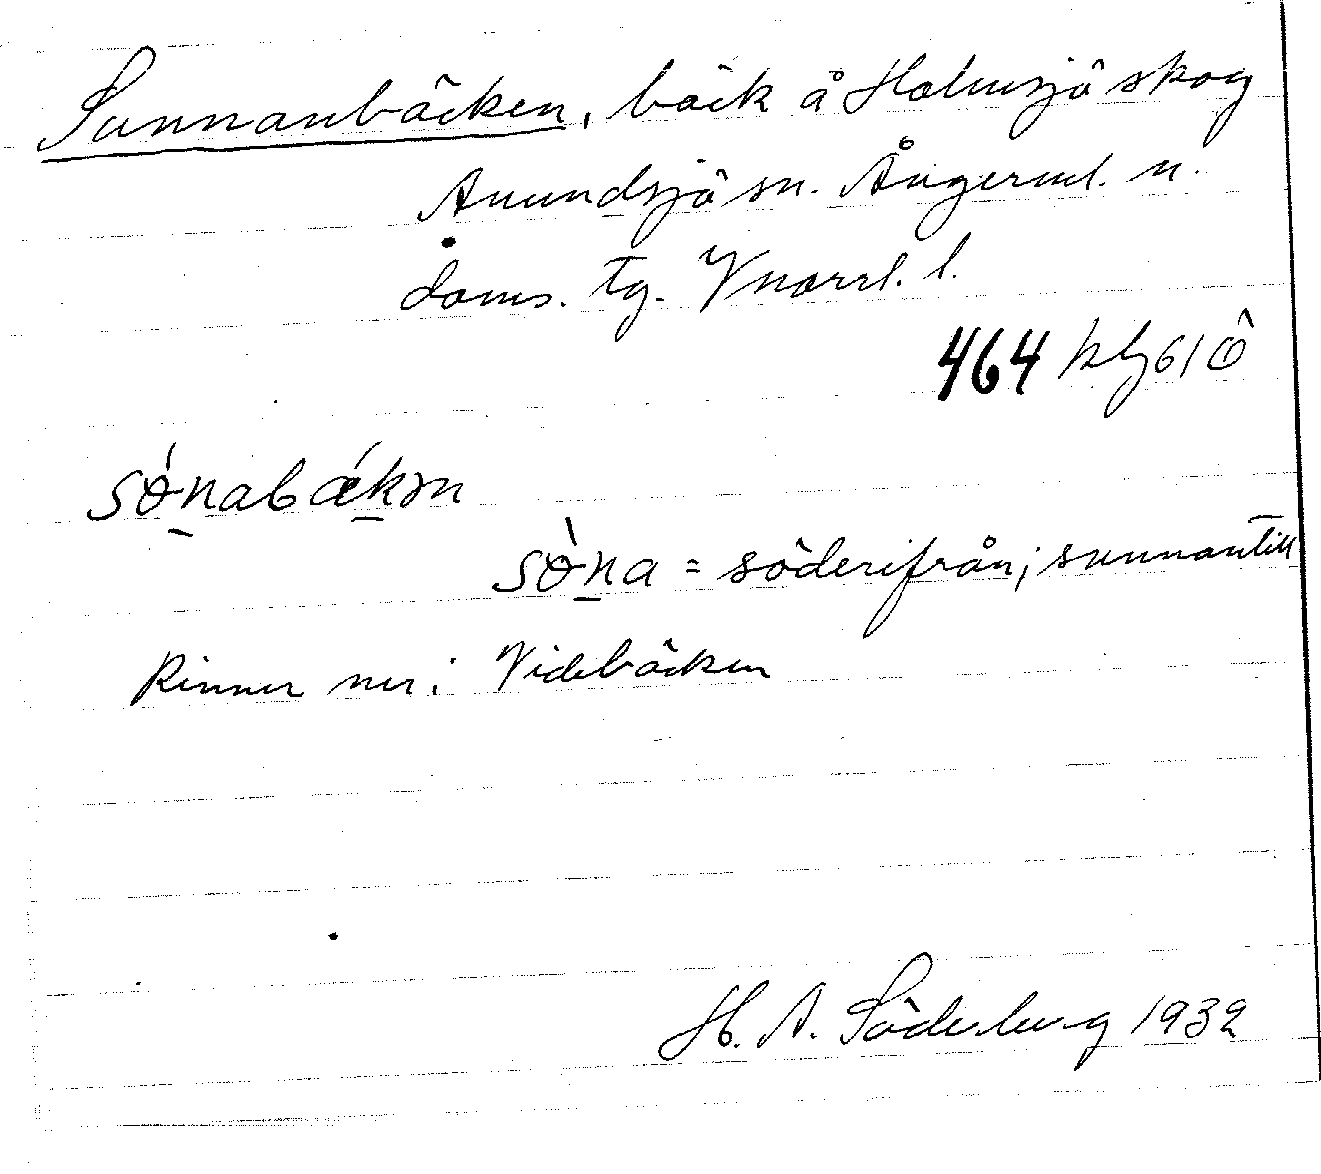 Sunnanbäcken, bäck å Holmsjö skog
Anundsjö sn. Ångerml. n.
doms. tg. Vnorrl. l.
464 kbg 61 ö
sónabǽkən
sòna = söderifrån; sunnantill
Rinner ner i Videbäcken
H. A. Söderberg 1932